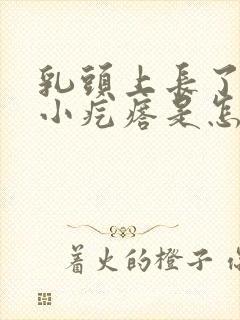 乳頭上長了
小疙瘩是怎
着火的橙子